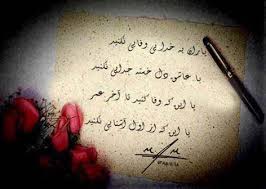 یاران به خدا بی وفایی نکنید
با عاشق دل خسته جدایی نکنید
یا این که وفا کنید تا آخر عمر
یا این که از اول آشنایی نکنید